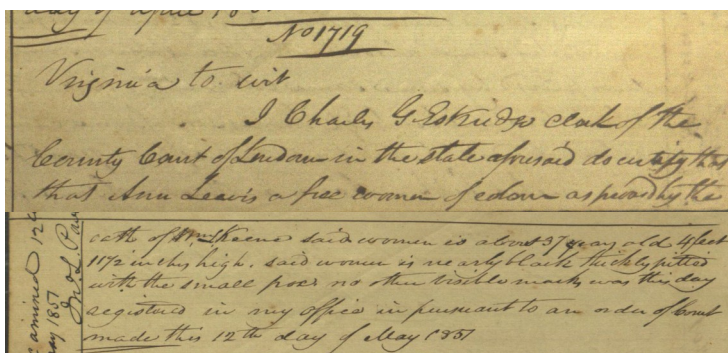 day of April 185
No 1719
Virginia to wit
I Charles G. Eskridge clerk of the
County Court of Loudoun in the state aforesaid do certify that
that Ann Leavis a free women of colour as proved by the
oath of Wm Keene said women is about 37 years old 4 feet
11 1/2 inches high. said women is nearly black thickly pitted
with the small pox no other visible marks was this day
registered in my office in pursuant to an order of Court
made this 12th day of May 1851
amined 12th
May 1851